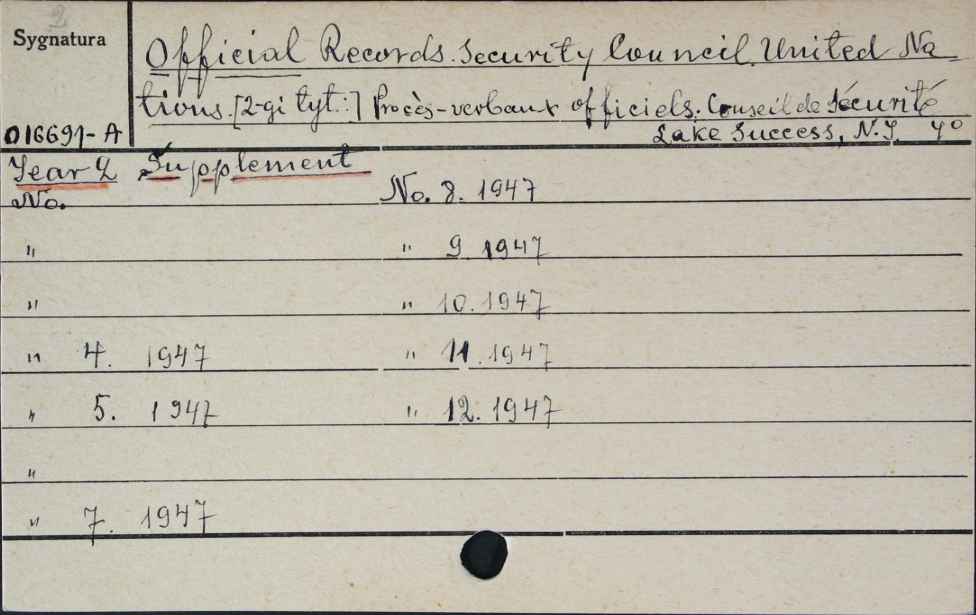 2
Sygnatura
Official Records. Security Council. United Na-
tions. [2-gi tyt.:] Procès-verbaux officiels. Conseil de Sécurité
016691-A
Lake Success, N.Y. 4°
Year 2 Supplement
No. No. 8. 1947
" " 9. 1947
" " 10. 1947
" 4. 1947 " 11. 1947
" 5. 1947 " 12. 1947
"
" 7. 1947